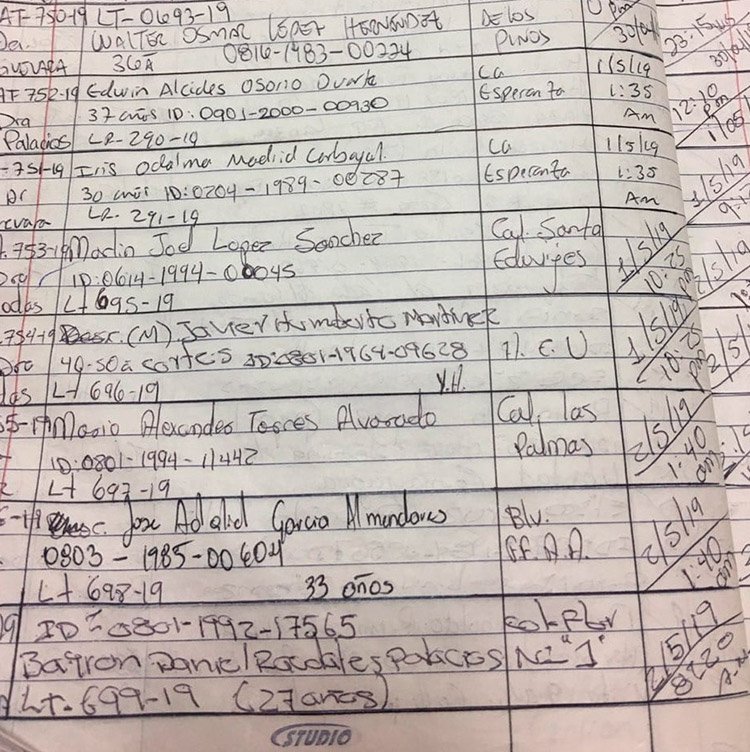 AF-750-19 LT-0693-19
WALTER OSMAR LOPEZ HERNANDEZ DE LOS
36A 0816-1983-00224 PINOS 30/04
GUEVARA
23:15
AF 752-19 Edwin Alcides Osorio Duarte La 1/5/19
Dra 37 años ID: 0901-2000-00930 Esperanza 1:35
Palacios LR-290-19 Am
12:10 pm
1/05
-751-19 Iris Odalma Madrid Carbajal. La 1/5/19
Dr 30 años ID: 0204-1989-00287 Esperanza 1:35
LR-291-19 Am
753-19 Marlin Joel Lopez Sanchez Col. Santa 1/5/19
ID: 0614-1994-00045 Eduviges 10:25
Lt 695-19
754-19 Desc. (M). Javier Humberto Martinez 1/5/19
40-50a cortes ID: 0801-1964-09628 H. E. U 10:25 pm
Lt 696-19 V.H.
55-19 Mario Alexander Torres Alvarado Col. las 2/5/19
ID: 0801-1994-11442 Palmas 1:40 am
Lt 697-19
-19 Desc. Jose Adalid Garcia Almendares Blv. 2/5/19
0803-1985-00604 FF.A.A. 1:40 am
Lt 698-19 33 años
19 ID=0801-1992-17565 2/5/19
Bairon Daniel Rodales Palacios N2 "1" 8:20
Lt-699-19 (27 años) A.M
STUDIO